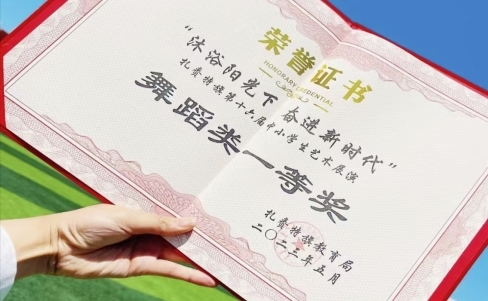 荣誉证书
HONORARY CREDENTIAL
“沐浴阳光下 奋进新时代”
扎赉特旗第十六届中小学生艺术展演
舞蹈类一等奖
扎赉特旗教育局
二〇二三年五月